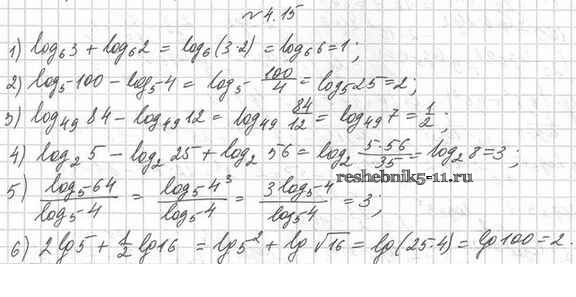 № 4.15
1) log₆3 + log₆2 = log₆(3·2) = log₆6 = 1;
2) log₅100 - log₅4 = log₅ 100/4 = log₅25 = 2;
3) log₄₉84 - log₄₉12 = log₄₉ 84/12 = log₄₉7 = 1/2;
4) log₂5 - log₂25 + log₂56 = log₂ 5·56/35 = log₂8 = 3;
reshebnik5-11.ru
5) log₅64/log₅4 = log₅4³/log₅4 = 3log₅4/log₅4 = 3;
6) 2lg5 + 1/2 lg16 = lg5² + lg√16 = lg(25·4) = lg100 = 2.